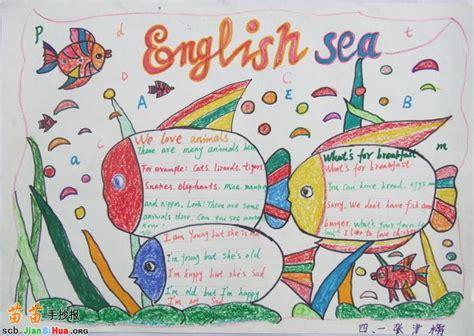 English sea
P
d
t
A
C
E
B
a
c
m
We love animals
There are many animals here
For example: Cats, lizards, tigers
Snakes, elephants, mice, monkey
and hippos. Look! There are some
animals there. Can you see
What's for breakfast
What's for breakfast
You can have bread, eggs
Sorry, We don't have fish and
burger. What's your
but I like to have
I am Young but she's old
I'm young but she's old
I'm happy but she's sad
I'm old but I'm happy
I'm not sad
四.一 张津
苗苗手抄报
scb.JianBiHua.ORG